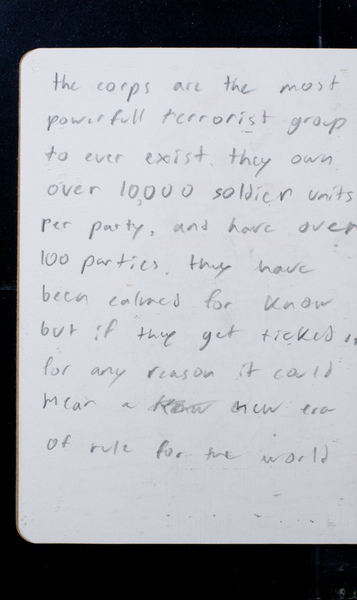 the corps are the most
powerfull terrorist group
to ever exist. they own
over 10,000 soldier units
per party, and have over
100 parties. they have
been calmed for know
but if they get ticked
for any reason it could
mean a new era
of rule for the world